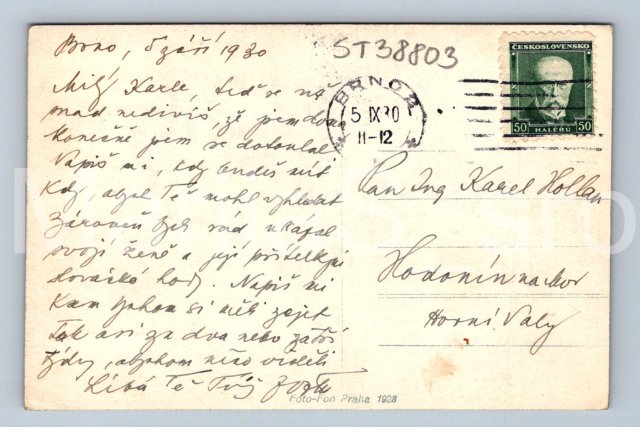 Brno, 5 září 1930
Milý Karle, teď se už
snad nedivíš, že jsem
Konečně jsem se
Napiš mi, kdy budeš mít
kdy, abych Tě mohl vyhledat
Zároveň bych rád ukázal
svojí ženě a její přítelkyni
hody. Napiš mi
kam bychom si měli zajet
Tak asi za dva nebo za tři
týdny, abychom něco viděli
Líbá Tě Tvůj
ST38803
BRNO 2
5 IX 30
11-12
ČESKOSLOVENSKO
50 HALÉŘŮ 50
Pan Ing Karel Hollan
Hodonín na Mor
Horní Valy
Foto-Fon Praha 1928